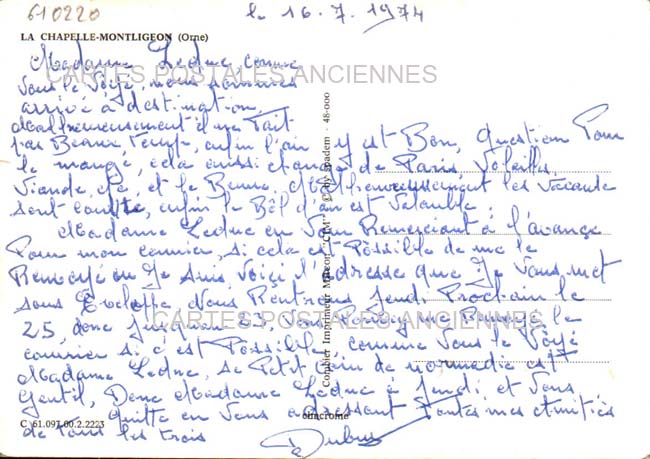 610220
le 16.7.1974
LA CHAPELLE-MONTLIGEON (Orne)
Madame Leduc comme
vous le voyé, nous sommes
arrivé à destination,
Malheureusement il ne fait
pas Beaux Temps, enfin l'air y est Bon, Question Pour
le mangé, cela aussi change de Paris, Volailles,
Viande, etc, et le Beurre, Malheureusement les vacances
sont courtte, enfin le est Valauble
Madame Leduc en Vous Remerciant à l'avance
Pour mon courrier, si cela est Possible de me le
Renvoyé ou Je suis, Voiçi l'adresse que Je vous met
sous Nous Rentrons Jeudi Prochain le
25, donc Jusqu'au 23, vous Pouvez me Renvoyé le
courrier si c'est Possible, comme vous le Voyé
Madame Leduc, se Petit Coin de normadie est
Gentil, Donc Madame Leduc à Jeudi, et Vous
quitte en Vous adressant toutes mes amitiés
de tous les trois
Dubus
CARTES POSTALES ANCIENNES
CARTES POSTALES ANCIENNES
Combier Imprimeur Mâcon "CIM" © by spadem - 48-000
cinacrome
C 61.097.00.2.2223